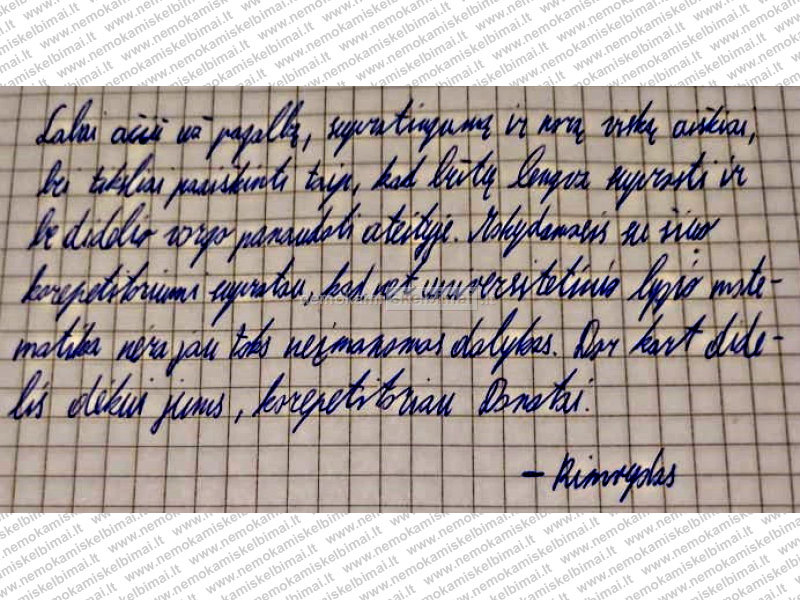 Labai ačiū už pagalbą, supratingumą ir norą viską aiškiai,
bei tiksliai paaiškinti taip, kad būtų lengva suprasti ir
be didelio vargo panaudoti ateityje. Mokydamasis su šiuo
korepetitoriumi supratau, kad net universitetinio lygio mate-
matika nėra jau toks neįmanomas dalykas. Dar kart dide-
lis dėkui jums, korepetitoriau Donatai.
– Rimvydas
www.nemokamiskelbimai.lt